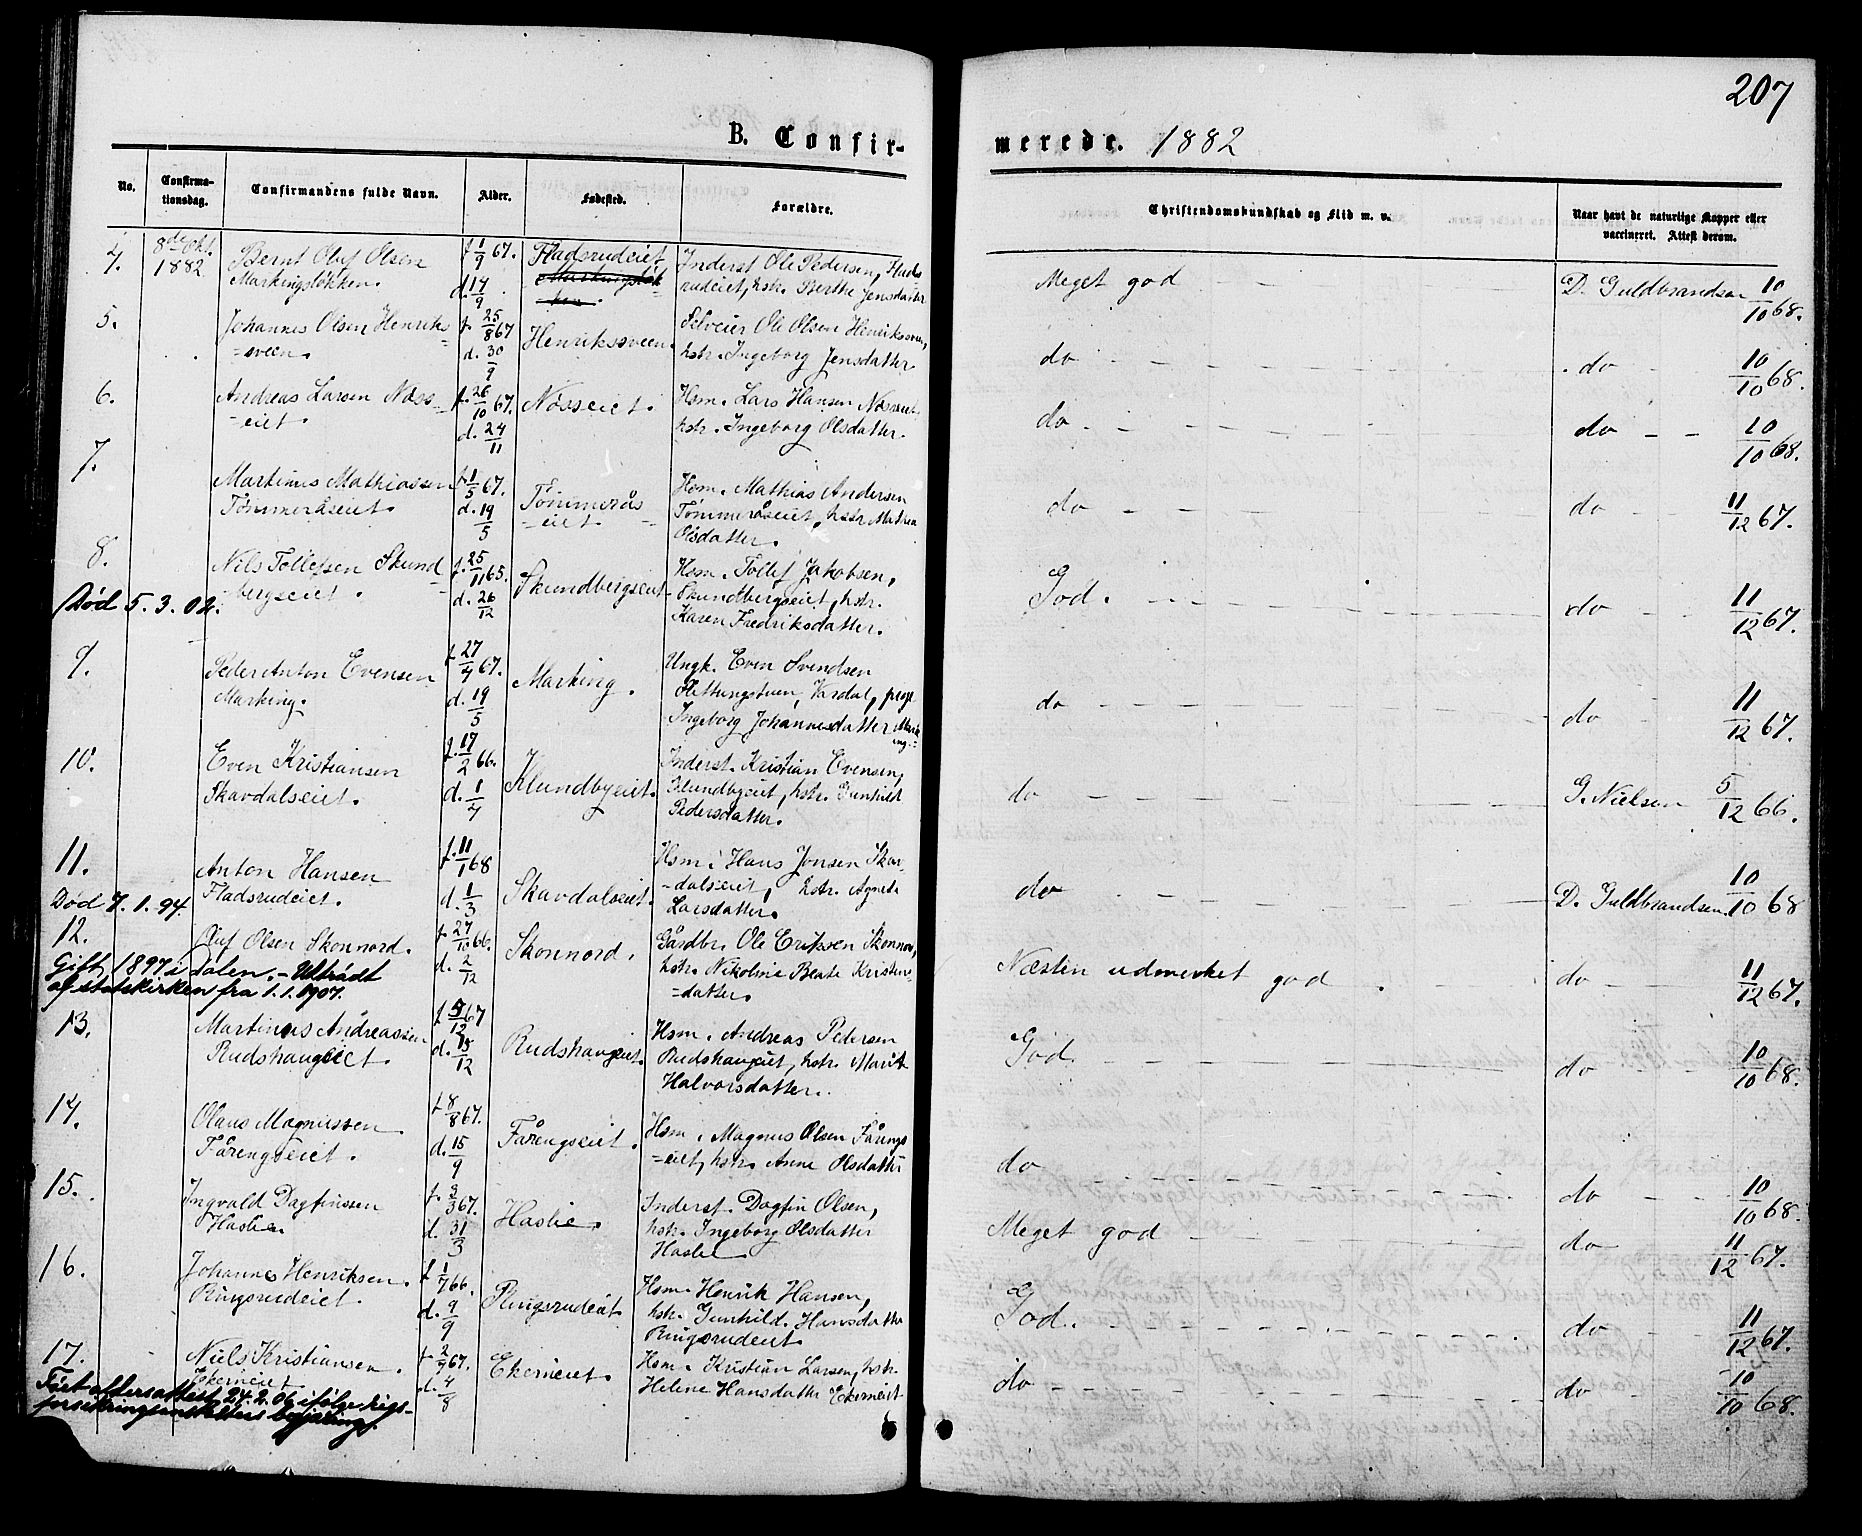 207
B. Confir-
merede. 1882
No.
Confirma-
tionsdag.
Confirmandens fulde Navn.
Alder.
Fødested.
Forældre.
Christendomskundskab og Flid m. v.
Naar havt de naturlige Kopper eller
vaccineret. Attest derom.
4. 8de Okt. 1882 Bernt Oluf Olsen f. 1/9 67. Fladsrudeiet Inderst Ole Pedersen, Flads
Markingsløkken. d. 14/9 rudeiet, hstr. Berthe Jensdatter Meget god D. Guldbrandsen 10/10 68.
5. Johannes Olsen Henriks= f. 25/8 67 Henriksveen. Selveier Ole Olsen Henriksveen,
=sveen. d. 30/9 hstr. Ingeborg Jensdatter do do 10/10 68.
6. Andreas Larsen Næss= f. 26/10 67. Næsseiet. Hsm. Lars Hansen Næsseiet
=eiet. d. 24/11 hstr. Ingeborg Olsdatter. do do 10/10 68.
7. Martinus Mathiassen f. 1/5 67. Tømmerås Hsm. Mathias Andersen
Tømmeråseiet d. 19/5 =eiet Tømmeråseiet, hstr. Mathea
Olsdatter. do do 11/12 67.
8. Nils Tollefsen Skund= f. 25/11 65. Skundbergseiet Hsm. Tollef Jakobsen,
bergseiet. d. 26/12 Skundbergseiet, hstr.
Død 5.3.02. Karen Fredriksdatter. God. do 11/12 67.
9. Peder Anton Evensen f. 27/4 67. Marking. Ungk. Even Svendsen
Marking. d. 19/5 Vardal, pige
Ingeborg Johannesdatter Mark
ing. do do 11/12 67.
10. Even Kristiansen f. 17/2 66. Klundbyeiet. Inderst. Kristian Evensen,
Skavdalseiet. d. 1/4 Klundbyeiet, hstr. Gunhild
Pedersdatter. do G. Nielsen 5/12 66.
11. Anton Hansen f. 11/1 68 Skavdalseiet. Hsm. Hans Jonsen Skav
Fladsrudeiet. d. 1/3 =dalseiet, hstr. Agnete
Død 7.1.94. Larsdatter. do D. Guldbrandsen 10/10 68
12. Oluf Olsen Skonnord. f. 27/10 66. Skonnord. Gårdbr. Ole Eriksen Skonnord,
Gift 1897 i Dalen. - Udtrådt d. 2/12 hstr. Nikoline Beate Kristens
af statskirken fra 1.1.1907. =datter. Næsten udmerket god. do 11/12 67.
13. Martinus Andreassen f. 5/12 67 Rudshaugeiet. Hsm. Andreas Pedersen
Rudshaugeiet. d. 15/12 Rudshaugeiet, hstr. Marit
Halvorsdatter. God. do 10/10 68.
14. Olaus Magnussen f. 8/8 67. Fårengseiet. Hsm. Magnus Olsen Fårengs
Fårengseiet. d. 15/9 =eiet, hstr. Anne Olsdatter do do 10/10 68.
15. Ingvald Dagfinssen f. 3/3 67. Haslie. Inderst. Dagfin Olsen,
Haslie. d. 31/3 hstr. Ingeborg Olsdatter
Haslie Meget god do 11/12 67.
16. Johannes Henriksen. f. 1/7 66. Ringsrudeiet Hsm. Henrik Hansen,
Ringsrudeiet. d. 9/9 hstr. Gunhild Hansdatter
Ringsrudeiet God. do 11/12 67.
17. Niels Kristiansen. f. 2/7 67. Ekerneiet. Hsm. Kristian Larsen, hstr.
Ekerneiet d. 4/8 Helene Hansdatter Ekerneiet do do 10/10 68.
attersattest 24.2.06 ifølge Rigs-
forsikringsanstaltens begjæring.